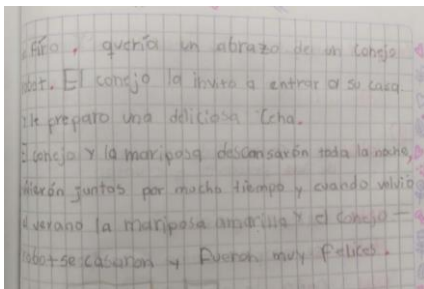 frío, quería un abrazo de un conejo
bot. El conejo la invito a entrar a su casa.
le preparo una deliciosa
conejo y la mariposa descansarón toda la noche,
juntos por mucho tiempo y cuando volvió
verano la mariposa amarilla y el conejo-
robot se casaron y fueron muy felices.